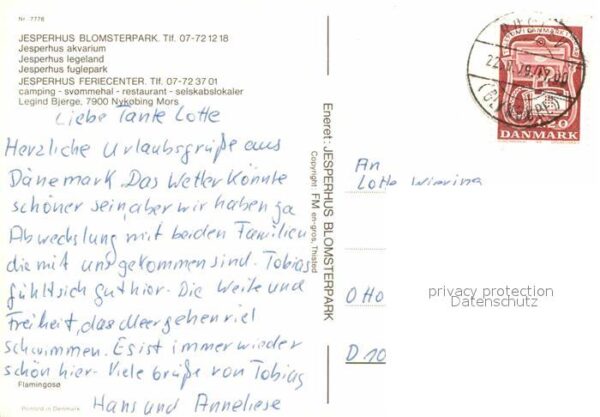 Nr. 7778
JESPERHUS BLOMSTERPARK. Tlf. 07-72 12 18
Jesperhus akvarium
Jesperhus legeland
Jesperhus fuglepark
JESPERHUS FERIECENTER. Tlf. 07-72 37 01
camping - svømmehal - restaurant - selskabslokaler
Legind Bjerge, 7900 Nykøbing Mors
Liebe Tante Lotte
Herzliche Urlaubsgrüße aus
Dänemark. Das Wetter könnte
schöner sein, aber wir haben ja
Abwechslung mit beiden Familien
die mit uns gekommen sind. Tobias
fühlt sich gut hier. Die Weite und
Freiheit, das Meer gehen viel
schwimmen. Es ist immer wieder
schön hier. Viele Grüße von Tobias
Hans und Anneliese
Flamingosø
Printed in Denmark
Eneret: JESPERHUS BLOMSTERPARK
Copyright: FM en-gros, Thisted
DANMARK
An
Lotte
Otto
D 10
privacy protection
Datenschutz